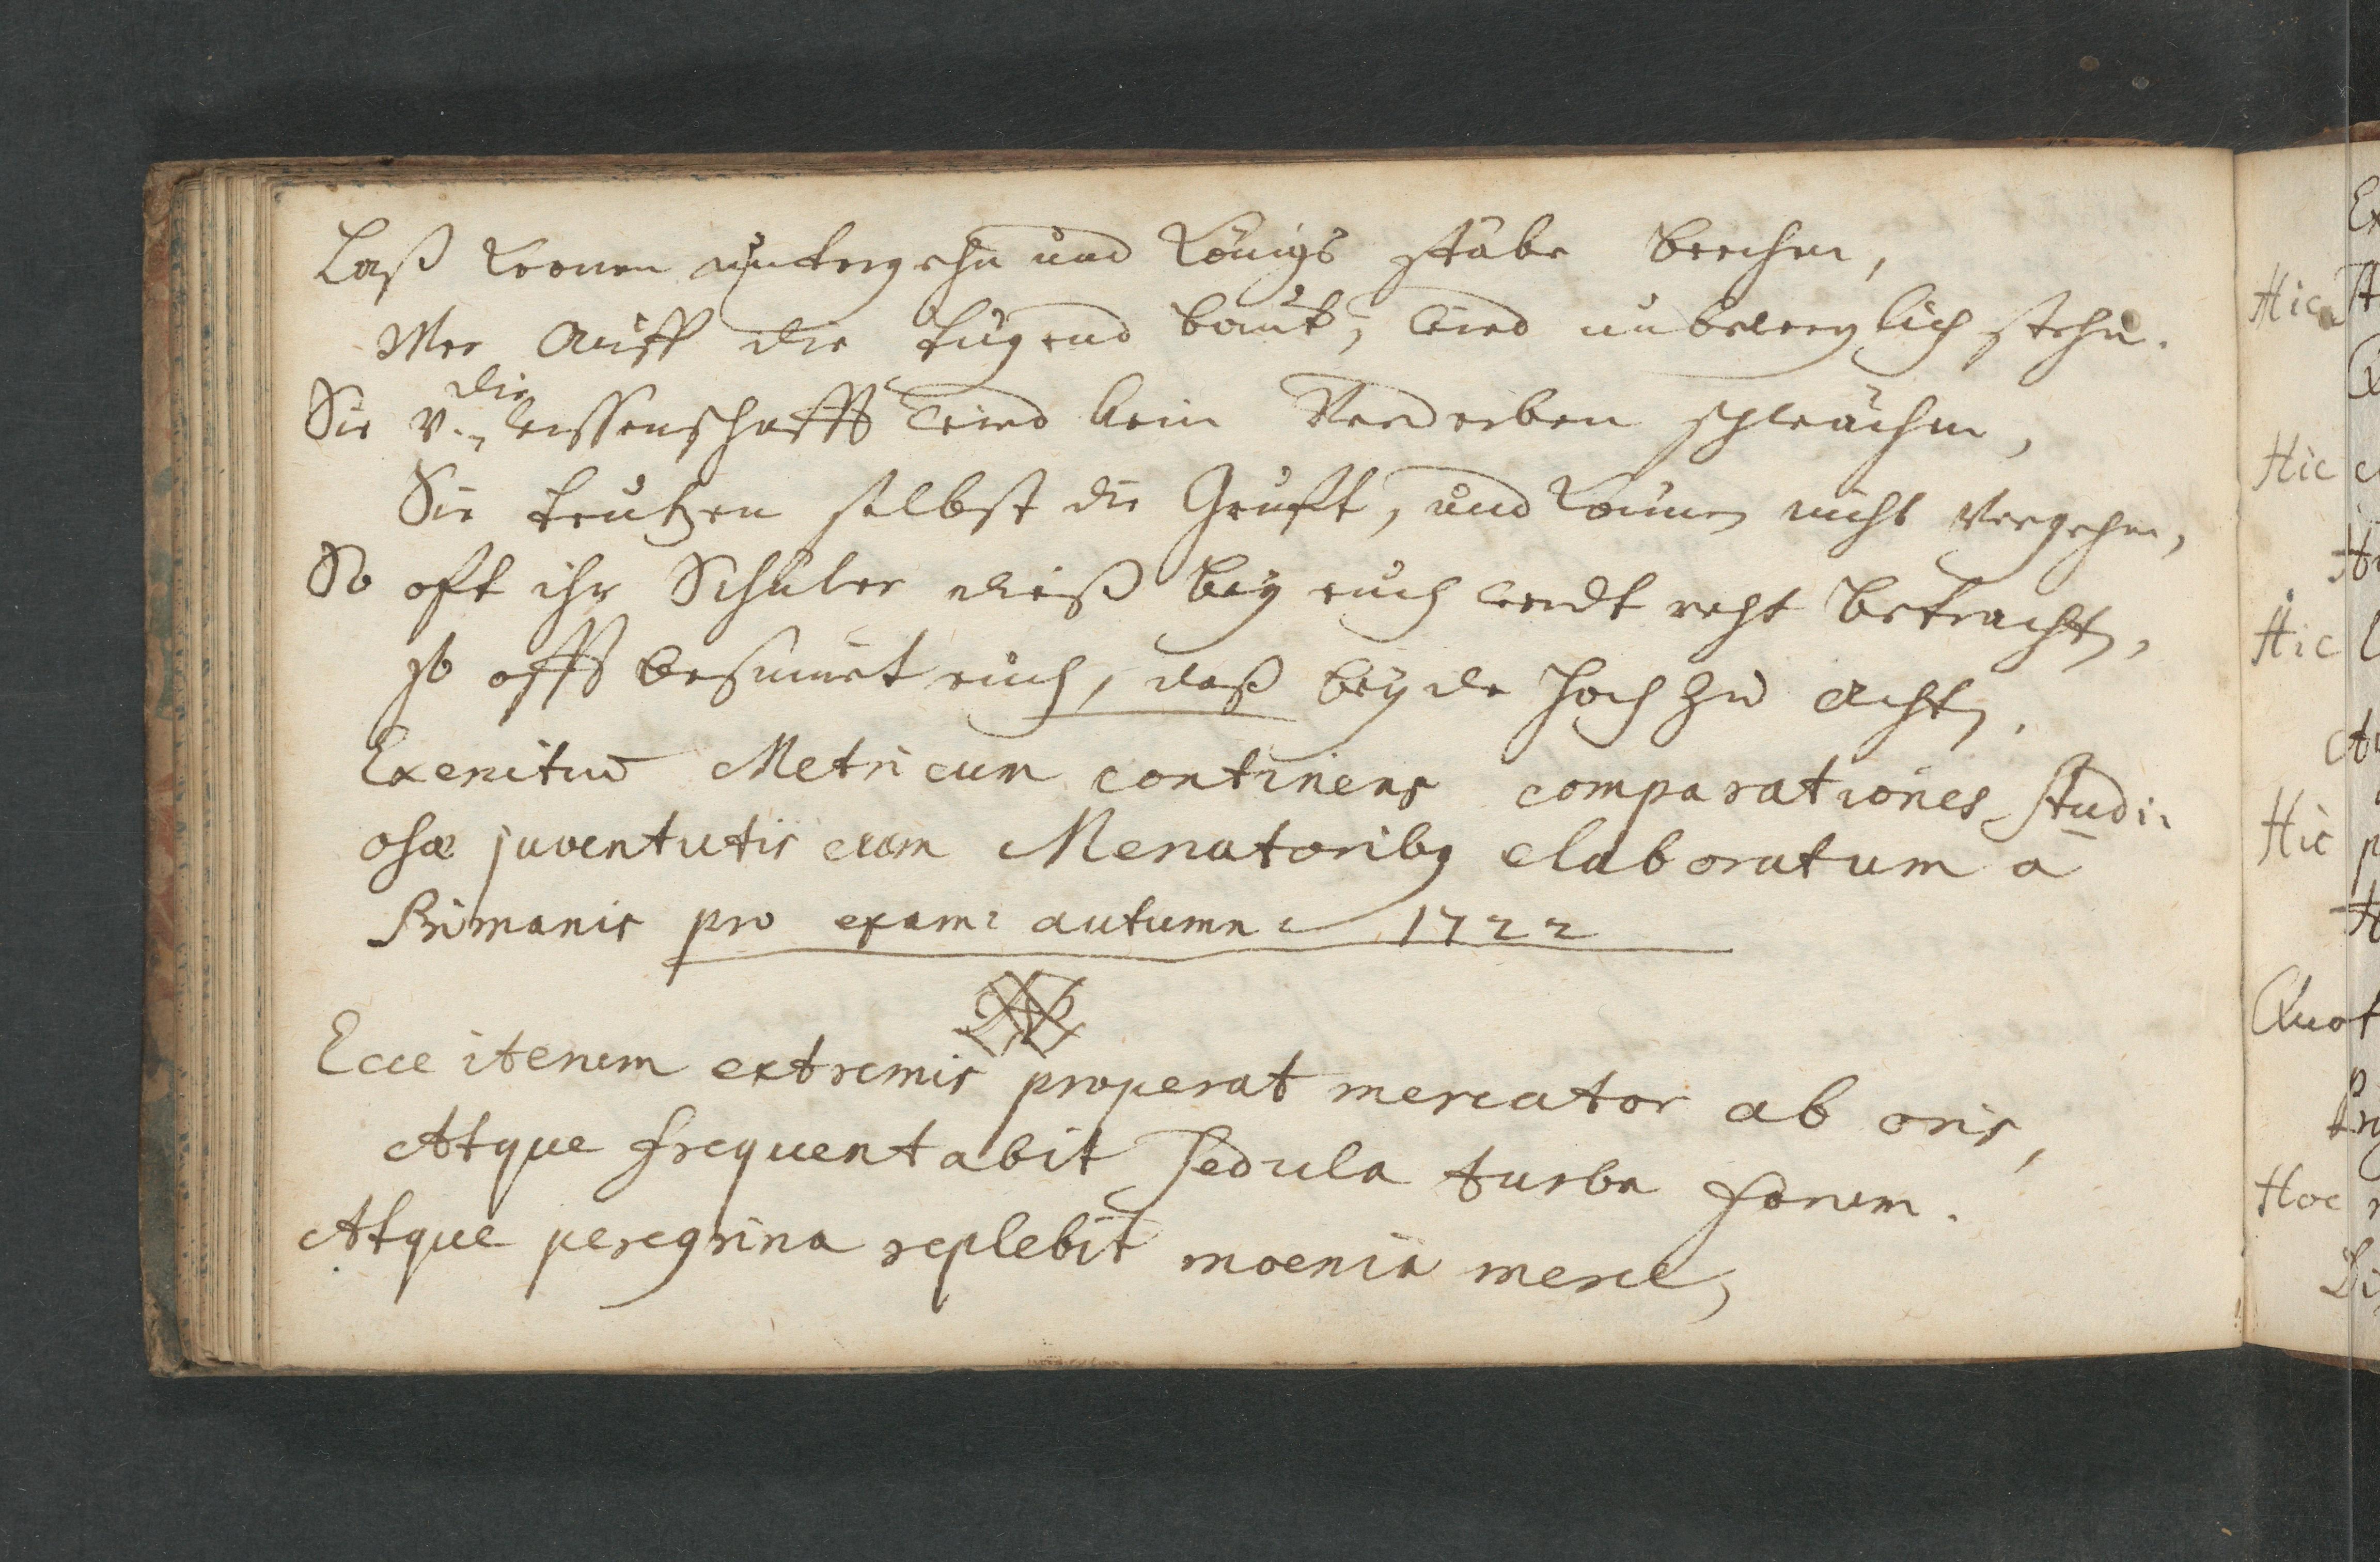 Laß Kronen untergehn und Königs stäbe brechen,
Wer Auff die tugend baut, wird unbeweglich stehn.
Sie v. die wissenschafft wird kein Verderben schwächen,
Sie trutzen selbst die Gruft, und können nicht Vergehen,
So oft ihr Schüler dieß bey euch werdt recht betrachten,
so offt besinnet euch, daß beyde hoch zu achten.
Exercitium Metricum continens comparationes studi-
osæ juventutis cum Mercatoribq elaboratum a
Primanis pro exam: autumn: 1722
Ecce iterum extremis properat mercator ab oris,
Atque frequentabit sedula turba forum.
Atque peregrina replebit moenia merce,
Hic
Hic
Hic
Hic
Quot
Hoc